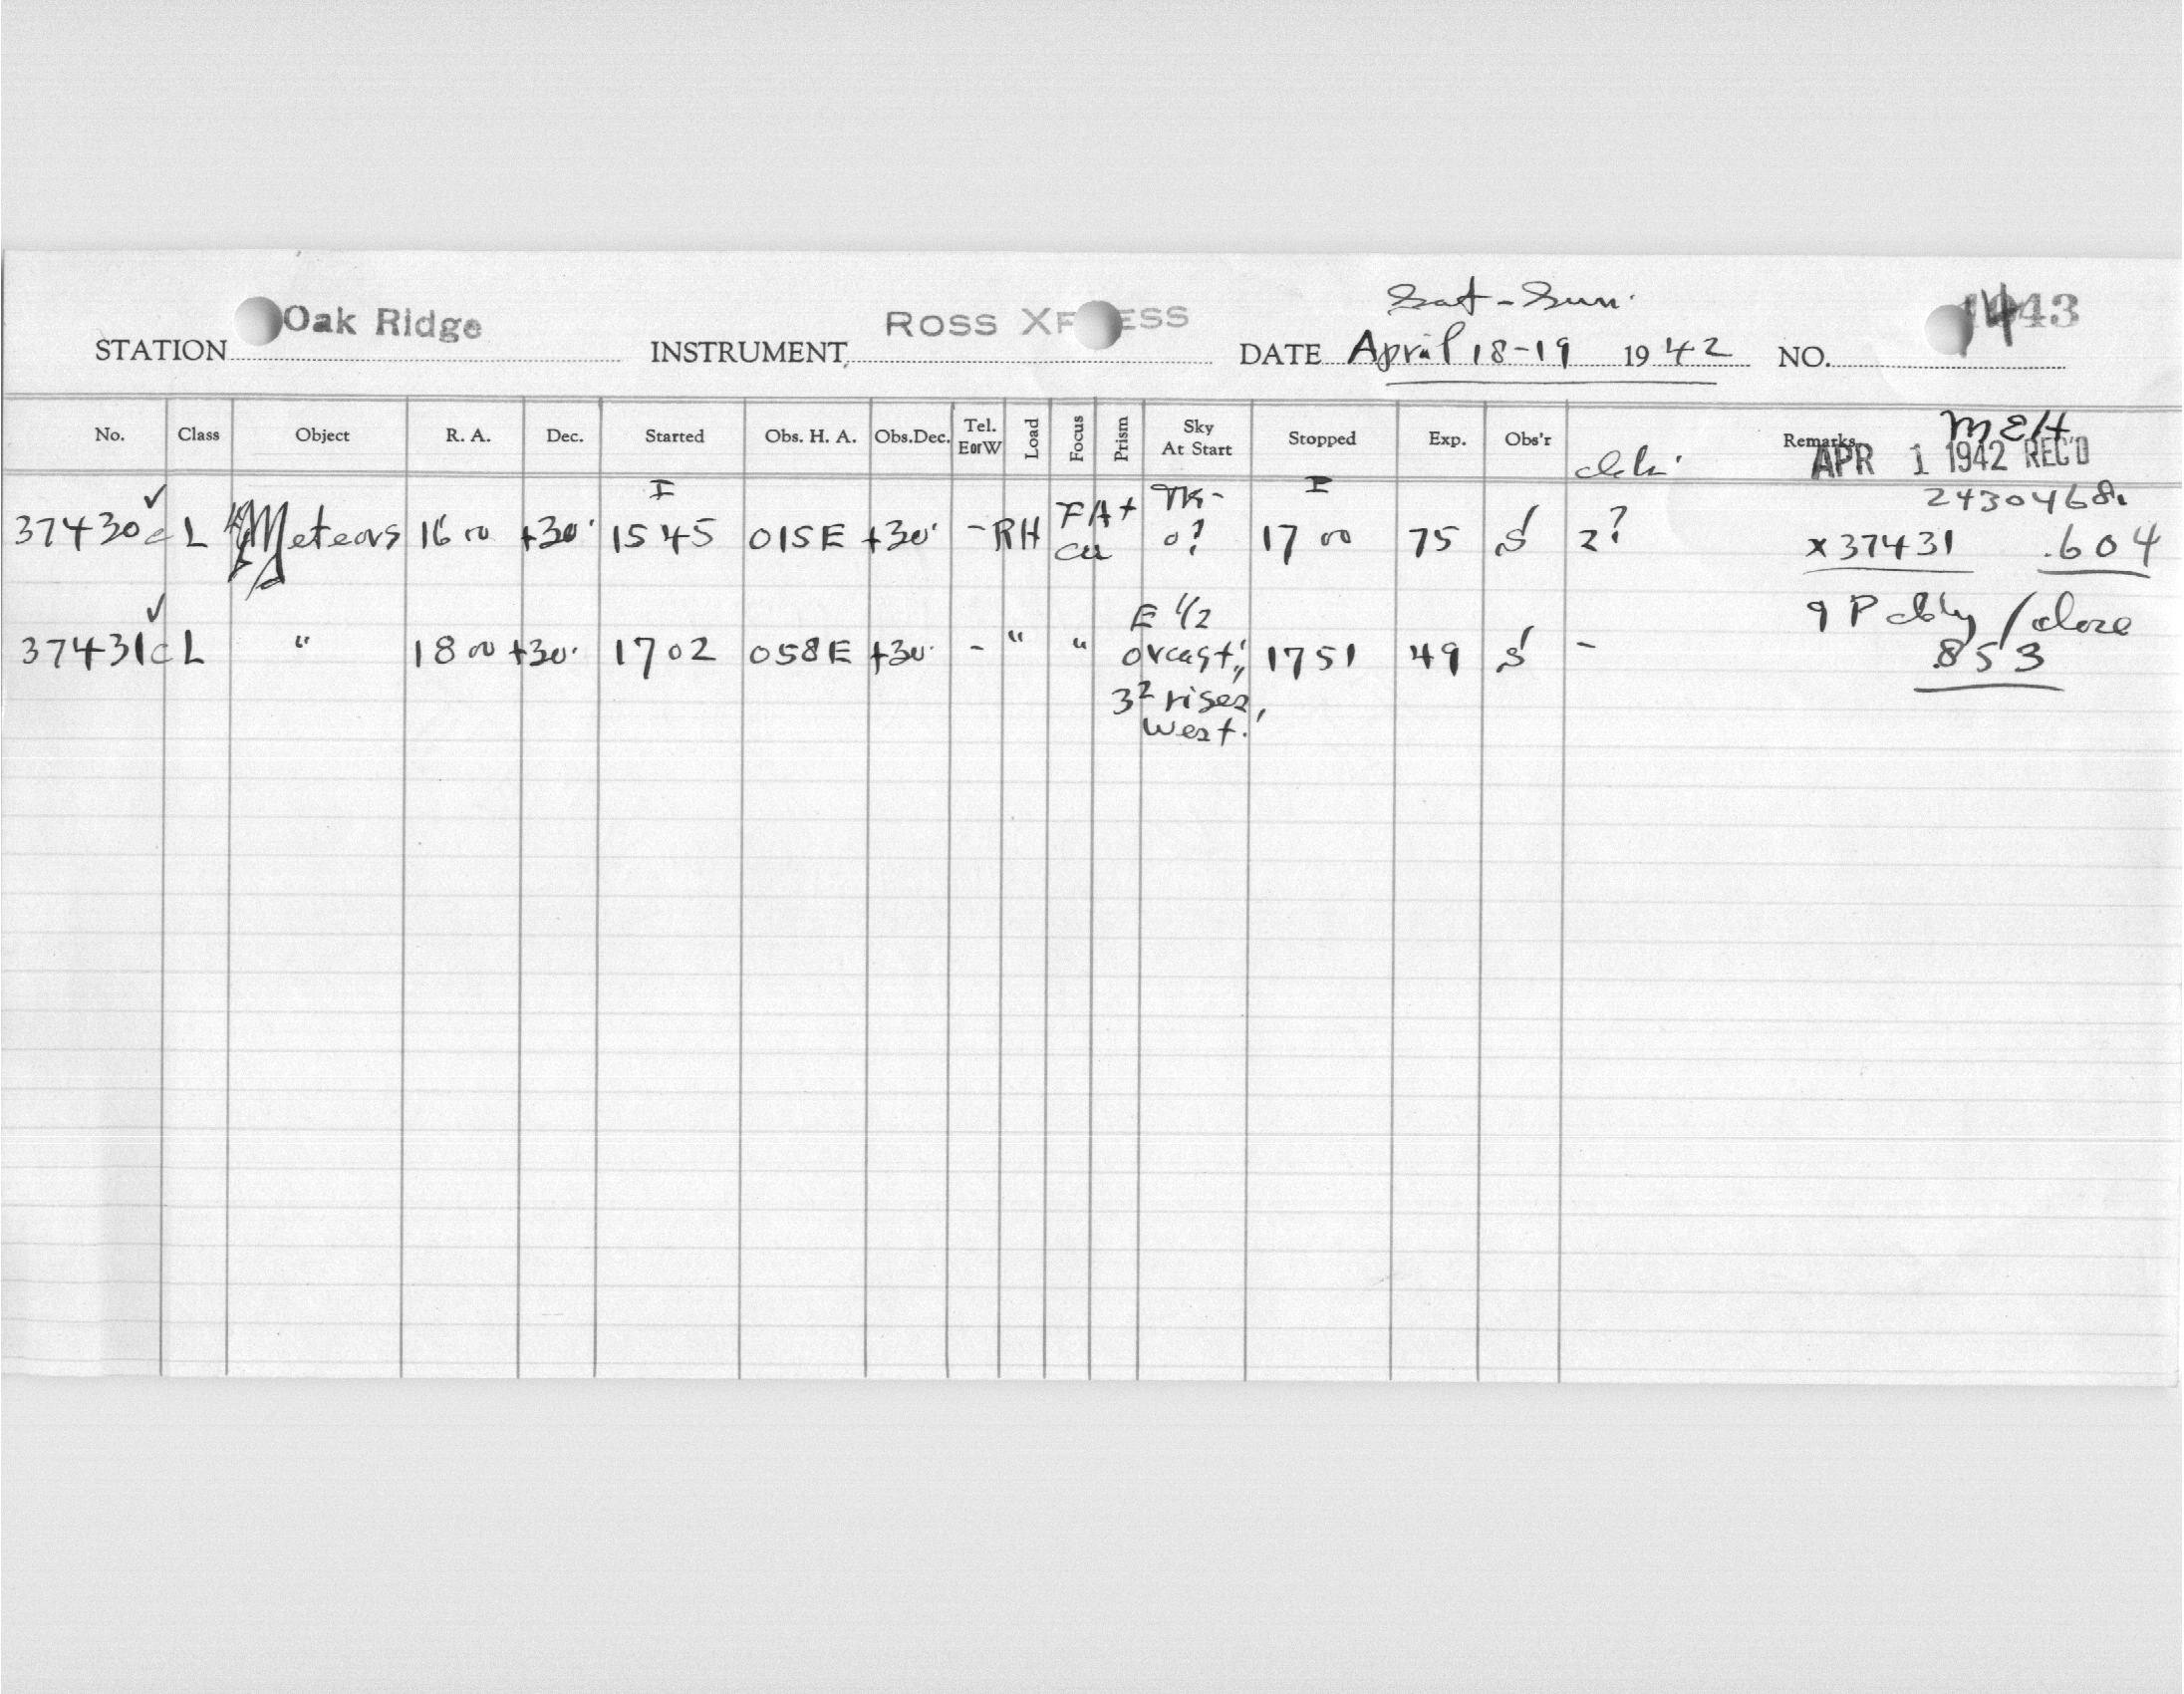 Sat-Sun.
STATION Oak Ridge INSTRUMENT ROSS XPRESS DATE April 18-19 1942 NO. 43
No. Class Object R. A. Dec. Started Obs. H. A. Obs.Dec. Tel. EorW Load Focus Prism Sky At Start Stopped Exp. Obs'r Remarks MEH
APR 1 1942 REC'D
I TK- I 2430468.
37430c L Meteors 16 00 +30° 15 45 015E +30° - RH FA+ ca 0? 17 00 75 S 2? x37431 .604
37431c L " 18 00 +30° 17 02 058E +30° - " " E 1/2 17 51 49 S - 9P cldy / close
ovcast, .853
3² rises,
West.